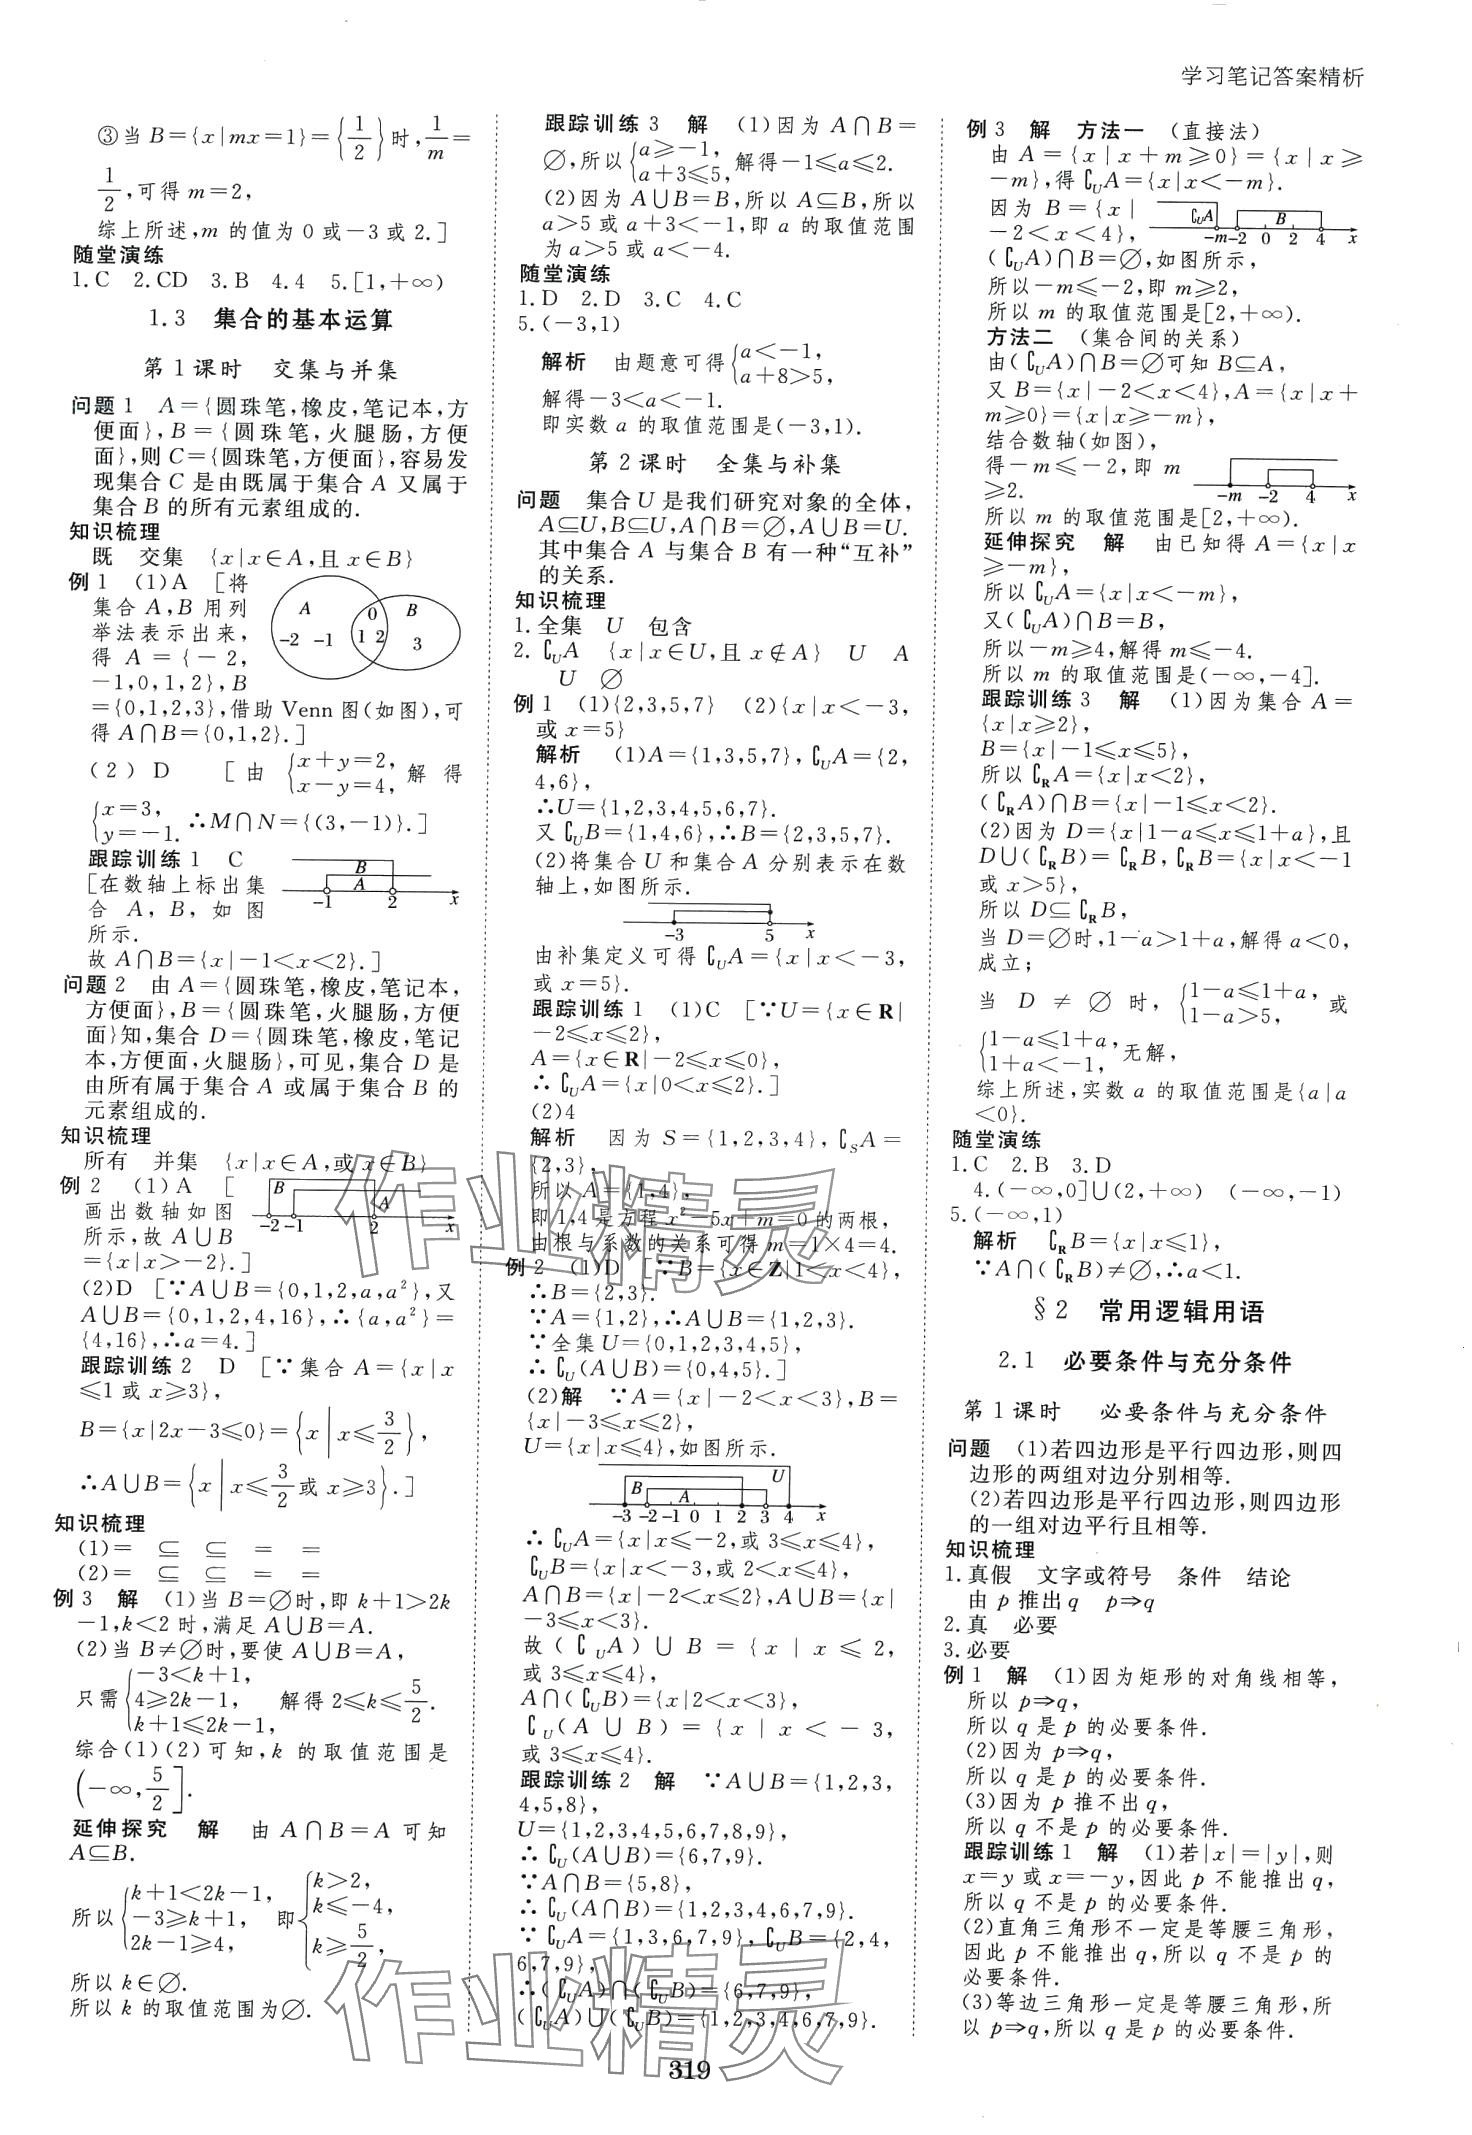 学习笔记答案精析
③当 B={x|mx=1}={1/2}时,1/m=
1/2,可得 m=2,
综上所述,m 的值为 0 或-3 或 2.]
随堂演练
1.C 2.CD 3.B 4.4 5.[1,+∞)
1.3 集合的基本运算
第 1 课时 交集与并集
问题 1 A={圆珠笔,橡皮,笔记本,方
便面},B={圆珠笔,火腿肠,方便
面},则 C={圆珠笔,方便面},容易发
现集合 C 是由既属于集合 A 又属于
集合 B 的所有元素组成的.
知识梳理
既 交集 {x|x∈A,且 x∈B}
例 1 (1)A [将
集合 A,B 用列
举法表示出来,
得 A={-2,
-1,0,1,2},B
={0,1,2,3},借助 Venn 图(如图),可
得 A∩B={0,1,2}.]
A B 0 -2 -1 1 2 3
(2) D [由 {x+y=2, x-y=4, 解得
{x=3, y=-1. ∴M∩N={(3,-1)}.]
跟踪训练 1 C
[在数轴上标出集
合 A,B,如图
所示.
B A -1 2 x
故 A∩B={x|-1<x<2}.]
问题 2 由 A={圆珠笔,橡皮,笔记本,
方便面},B={圆珠笔,火腿肠,方便
面}知,集合 D={圆珠笔,橡皮,笔记
本,方便面,火腿肠},可见,集合 D 是
由所有属于集合 A 或属于集合 B 的
元素组成的.
知识梳理
所有 并集 {x|x∈A,或 x∈B}
例 2 (1)A [
画出数轴如图
所示,故 A∪B
={x|x>-2}.]
B A -2 -1 2 x
(2)D [∵A∪B={0,1,2,a,a²},又
A∪B={0,1,2,4,16},∴{a,a²}=
{4,16},∴a=4.]
跟踪训练 2 D [∵集合 A={x|x
≤1 或 x≥3},
B={x|2x-3≤0}={x|x≤3/2},
∴A∪B={x|x≤3/2或 x≥3}.]
知识梳理
(1)= ⊆ ⊆ = =
(2)= ⊆ ⊆ = =
例 3 解 (1)当 B=∅时,即 k+1>2k
-1,k<2 时,满足 A∪B=A.
(2)当 B≠∅时,要使 A∪B=A,
只需{-3<k+1, 4≥2k-1, k+1≤2k-1, 解得 2≤k≤5/2.
综合(1)(2)可知,k 的取值范围是
(-∞,5/2].
延伸探究 解 由 A∩B=A 可知
A⊆B.
所以{k+1<2k-1, -3≥k+1, 2k-1≥4, 即{k>2, k≤-4, k≥5/2,
所以 k∈∅.
所以 k 的取值范围为∅.
跟踪训练 3 解 (1)因为 A∩B=
∅,所以{a≥-1, a+3≤5, 解得-1≤a≤2.
(2)因为 A∪B=B,所以 A⊆B,所以
a>5 或 a+3<-1,即 a 的取值范围
为 a>5 或 a<-4.
随堂演练
1.D 2.D 3.C 4.C
5.(-3,1)
解析 由题意可得{a<-1, a+8>5,
解得-3<a<-1.
即实数 a 的取值范围是(-3,1).
第 2 课时 全集与补集
问题 集合 U 是我们研究对象的全体,
A⊆U,B⊆U,A∩B=∅,A∪B=U.
其中集合 A 与集合 B 有一种“互补”
的关系.
知识梳理
1.全集 U 包含
2.∁UA {x|x∈U,且 x∉A} U A
U ∅
例 1 (1){2,3,5,7} (2){x|x<-3,
或 x=5}
解析 (1)A={1,3,5,7},∁UA={2,
4,6},
∴U={1,2,3,4,5,6,7}.
又 ∁UB={1,4,6},∴B={2,3,5,7}.
(2)将集合 U 和集合 A 分别表示在数
轴上,如图所示.
-3 5 x
由补集定义可得 ∁UA={x|x<-3,
或 x=5}.
跟踪训练 1 (1)C [∵U={x∈R|
-2≤x≤2},
A={x∈R|-2≤x≤0},
∴∁UA={x|0<x≤2}.]
(2)4
解析 因为 S={1,2,3,4},∁SA=
{2,3},
所以 A={1,4},
即 1,4 是方程 x²-5x+m=0 的两根,
由根与系数的关系可得 m=1×4=4.
例 2 (1)D [∵B={x∈Z|1<x<4},
∴B={2,3}.
∵A={1,2},∴A∪B={1,2,3}.
∵全集 U={0,1,2,3,4,5},
∴∁U(A∪B)={0,4,5}.]
(2)解 ∵A={x|-2<x<3},B=
{x|-3≤x≤2},
U={x|x≤4},如图所示.
U B A -3 -2 -1 0 1 2 3 4 x
∴∁UA={x|x≤-2,或 3≤x≤4},
∁UB={x|x<-3,或 2<x≤4},
A∩B={x|-2<x≤2},A∪B={x|
-3≤x<3}.
故(∁UA)∪B={x|x≤2,
或 3≤x≤4},
A∩(∁UB)={x|2<x<3},
∁U(A∪B)={x|x<-3,
或 3≤x≤4}.
跟踪训练 2 解 ∵A∪B={1,2,3,
4,5,8},
U={1,2,3,4,5,6,7,8,9},
∴∁U(A∪B)={6,7,9}.
∵A∩B={5,8},
∴∁U(A∩B)={1,2,3,4,6,7,9}.
∵∁UA={1,3,6,7,9},∁UB={2,4,
6,7,9},
∴(∁UA)∩(∁UB)={6,7,9},
(∁UA)∪(∁UB)={1,2,3,4,6,7,9}.
例 3 解 方法一 (直接法)
由 A={x|x+m≥0}={x|x≥
-m},得 ∁UA={x|x<-m}.
因为 B={x|
-2<x<4},
∁UA B -m -2 0 2 4 x
(∁UA)∩B=∅,如图所示,
所以-m≤-2,即 m≥2,
所以 m 的取值范围是[2,+∞).
方法二 (集合间的关系)
由(∁UA)∩B=∅可知 B⊆A,
又 B={x|-2<x<4},A={x|x+
m≥0}={x|x≥-m},
结合数轴(如图),
得-m≤-2,即 m
≥2.
-m -2 4 x
所以 m 的取值范围是[2,+∞).
延伸探究 解 由已知得 A={x|x
≥-m},
所以 ∁UA={x|x<-m},
又(∁UA)∩B=B,
所以-m≥4,解得 m≤-4.
所以 m 的取值范围是(-∞,-4].
跟踪训练 3 解 (1)因为集合 A=
{x|x≥2},
B={x|-1≤x≤5},
所以 ∁RA={x|x<2},
(∁RA)∩B={x|-1≤x<2}.
(2)因为 D={x|1-a≤x≤1+a},且
D∪(∁RB)=∁RB,∁RB={x|x<-1
或 x>5},
所以 D⊆∁RB,
当 D=∅时,1-a>1+a,解得 a<0,
成立;
当 D≠∅时,{1-a≤1+a, 1-a>5, 或
{1-a≤1+a, 1+a<-1, 无解,
综上所述,实数 a 的取值范围是{a|a
<0}.
随堂演练
1.C 2.B 3.D
4.(-∞,0]∪(2,+∞) (-∞,-1)
5.(-∞,1)
解析 ∁RB={x|x≤1},
∵A∩(∁RB)≠∅,∴a<1.
§2 常用逻辑用语
2.1 必要条件与充分条件
第 1 课时 必要条件与充分条件
问题 (1)若四边形是平行四边形,则四
边形的两组对边分别相等.
(2)若四边形是平行四边形,则四边形
的一组对边平行且相等.
知识梳理
1.真假 文字或符号 条件 结论
由 p 推出 q p⇒q
2.真 必要
3.必要
例 1 解 (1)因为矩形的对角线相等,
所以 p⇒q,
所以 q 是 p 的必要条件.
(2)因为 p⇒q,
所以 q 是 p 的必要条件.
(3)因为 p 推不出 q,
所以 q 不是 p 的必要条件.
跟踪训练 1 解 (1)若|x|=|y|,则
x=y 或 x=-y,因此 p 不能推出 q,
所以 q 不是 p 的必要条件.
(2)直角三角形不一定是等腰三角形,
因此 p 不能推出 q,所以 q 不是 p 的
必要条件.
(3)等边三角形一定是等腰三角形,所
以 p⇒q,所以 q 是 p 的必要条件.
作业精灵
作业精灵
319